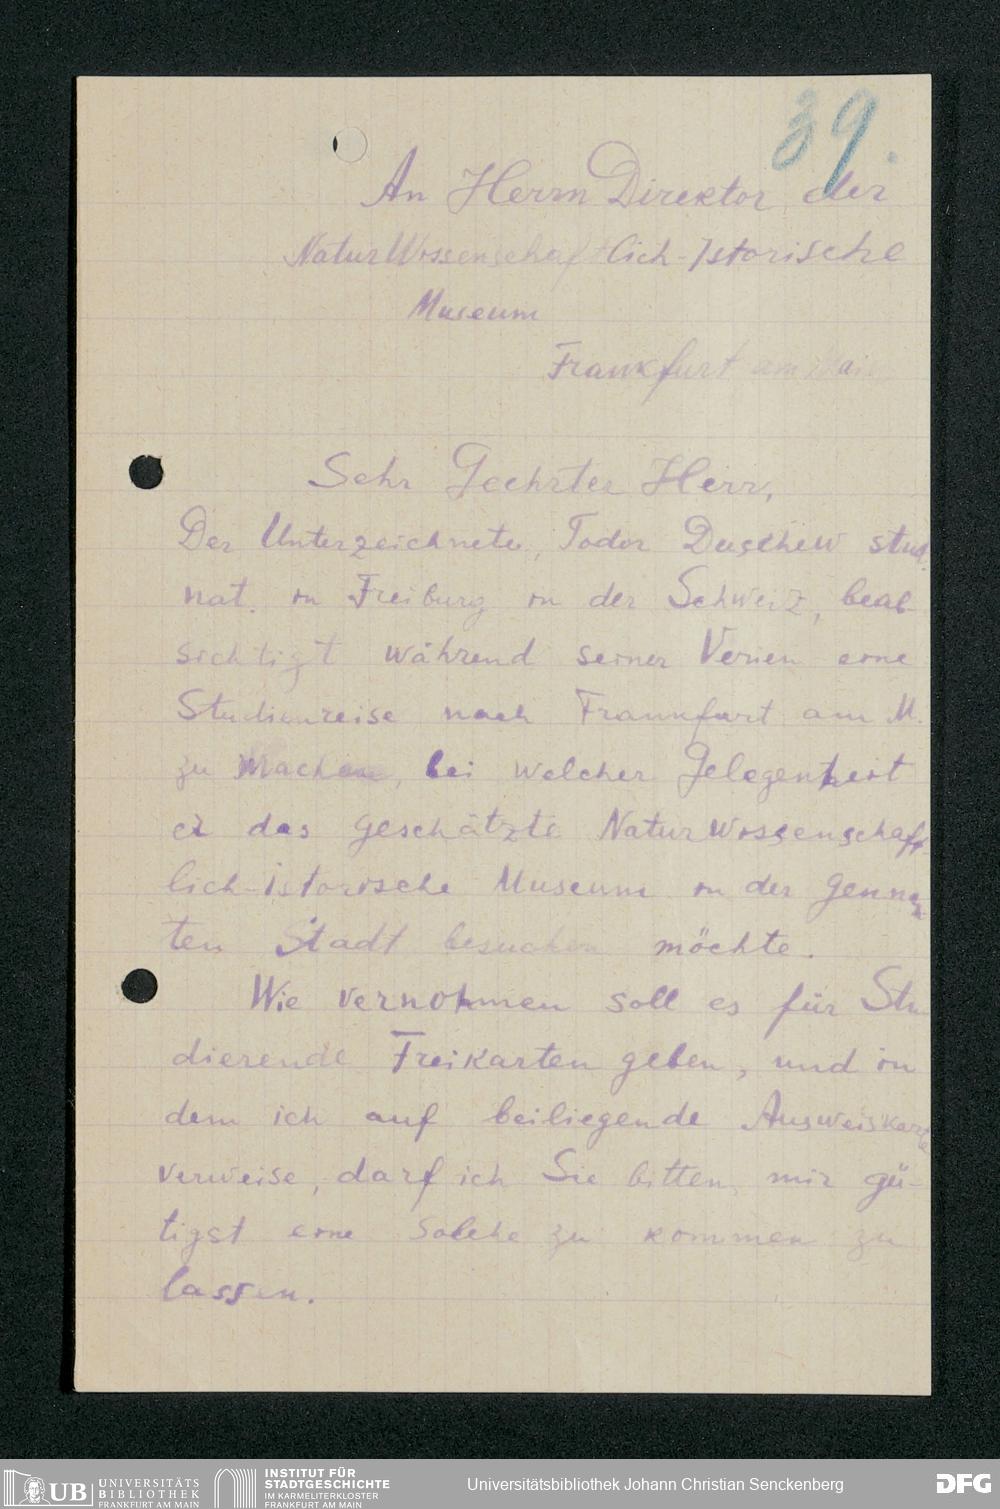 39.
An Herrn Direktor der
NaturWissenschaftlich-Istorische
Museum
Frankfurt am Main
Sehr Geehrter Herr,
Der Unterzeichnete, Todor Duschew stud.
nat. in Freiburg in der Schweiz, beab-
sichtigt während seiner Verien eine
Studienreise nach Frankfurt am M.
zu Machen, bei welcher Gelegenheit
er das geschätzte NaturWissenschaft-
lich-istorische Museum in der genna-
ten Stadt besuchen möchte.
Wie vernohmen soll es für Stu-
dierende Freikarten geben, und in
dem ich auf beiliegende Ausweiskarte
verweise, darf ich Sie bitten, mir gü-
tigst eine solche zu kommen zu
lassen.
UB UNIVERSITÄTS
BIBLIOTHEK
FRANKFURT AM MAIN
INSTITUT FÜR
STADTGESCHICHTE
IM KARMELITERKLOSTER
FRANKFURT AM MAIN
Universitätsbibliothek Johann Christian Senckenberg
DFG